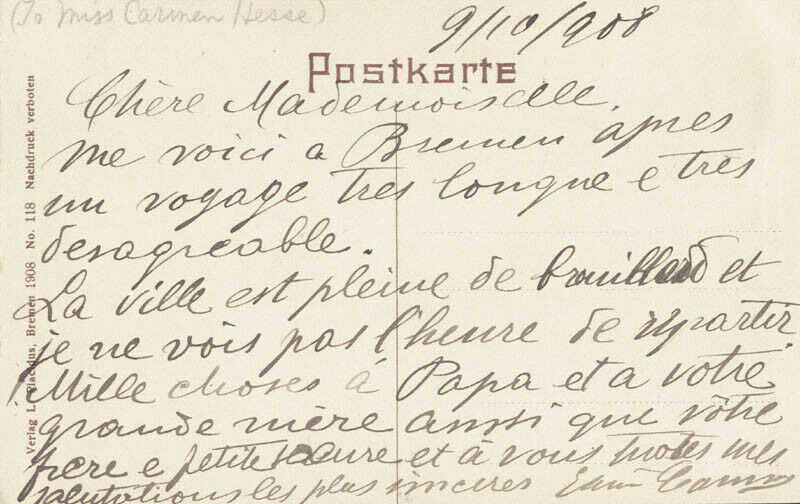 (To Miss Carmen Hesse)
9/10/908
Postkarte
Chère Mademoiselle.
me voici a Bremen apres
un voyage tres longue e tres
desagreable.
La ville est pleine de brouillard et
je ne vois pas l'heure de repartir
Mille choses à Papa et a votre
grande mère aussi que vôtre
frere e petite et à vous toutes mes
salutations les plus sinceres
Verlag L. Bremen 1908 No. 118 Nachdruck verboten